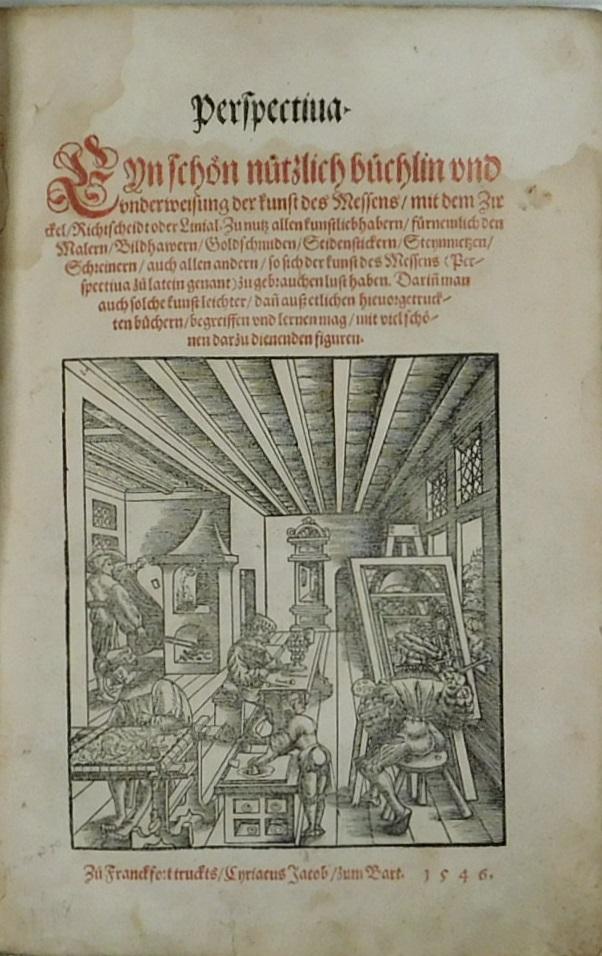 Perspectiua.
Eyn schön nützlich büchlin vnd
vnderweisung der kunst des Messens / mit dem Zir
ckel / Richtscheidt oder Linial. Zu nutz allen kunstliebhabern / fürnemlich den
Malern / Bildhawern / Goldschmiden / Seidenstickern / Steynmetzen /
Schreinern / auch allen andern / so sich der kunst des Messens (Per-
spectiua zů latein genant) zu gebrauchen lust haben. Dariñ man
auch solche kunst leichter / dañ auß etlichen hieuorgetruck-
ten büchern / begreiffen vnd lernen mag / mit viel schö-
nen darzu dienenden figuren.
Zů Franckfort truckts / Cyriacus Jacob / zum Bart. 1546.